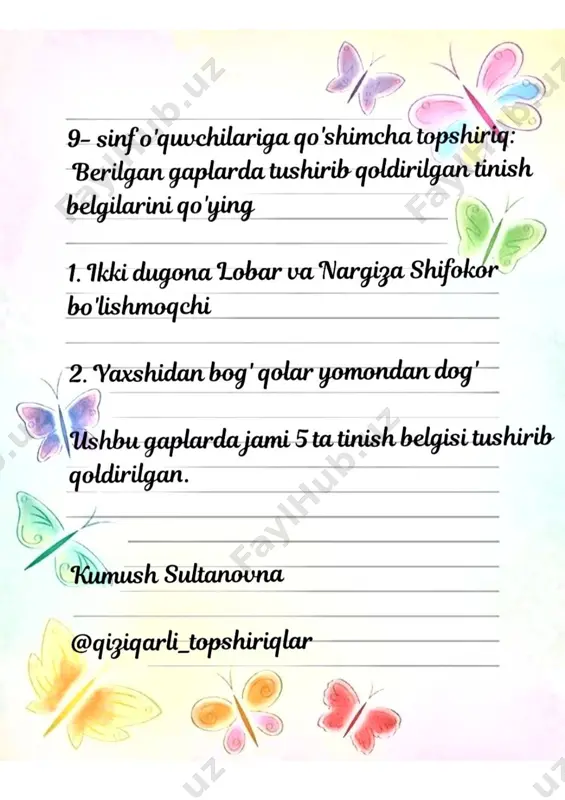 9- sinf o'quvchilariga qo'shimcha topshiriq:
Berilgan gaplarda tushirib qoldirilgan tinish
belgilarini qo'ying
1. Ikki dugona Lobar va Nargiza Shifokor
bo'lishmoqchi
2. Yaxshidan bog' qolar yomondan dog'
Ushbu gaplarda jami 5 ta tinish belgisi tushirib
qoldirilgan.
Kumush Sultanovna
@qiziqarli_topshiriqlar
FaylHub.uz
FaylHub.uz
FaylHub.uz
b.uz
uz
uz